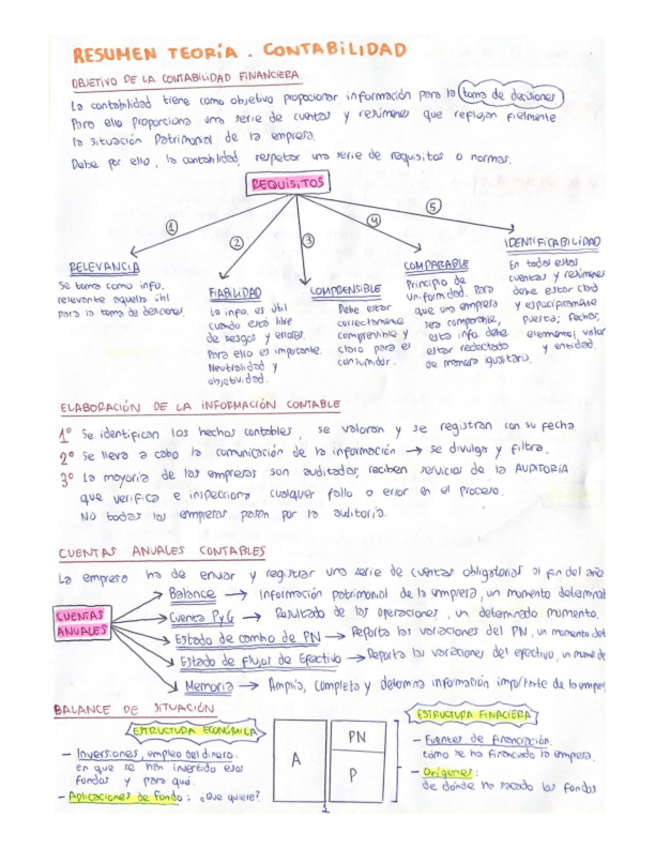 RESUMEN TEORÍA. CONTABILIDAD
OBJETIVO DE LA CONTABILIDAD FINANCIERA.
La contabilidad tiene como objetivo propocionar información para la toma de decisiones
Para ello proporciona una serie de cuentas y resúmenes que reflejan fielmente
la situación Patrimonial de la empresa.
Debe por ello, la contabilidad, respetar una serie de requisitos o normas.
REQUISITOS
1
2
3
4
5
RELEVANCIA
Se toma como info.
relevante aquella útil
para la toma de decisiones.
FIABILIDAD
La info. es útil
cuando está libre
de sesgos y errores.
Para ello es importante.
Neutralidad y
objetividad.
COMPRENSIBLE
Debe estar
correctamente
comprensible y
claro para el
consumidor.
COMPARABLE
Principio de
uniformidad. Para
que una empresa
sea comparable,
esta info. debe
estar redactada
de manera igualitaria.
IDENTIFICABILIDAD
En todas estas
cuentas y resúmenes
debe estar clara
y
puesta; fechas,
elementos, valor
y entidad.
ELABORACIÓN DE LA INFORMACIÓN CONTABLE
1º Se identifican los hechos contables, se valoran y se registran con su fecha.
2º Se lleva a cabo la comunicación de la información → se divulga y filtra.
3º La mayoría de las empresas son auditadas, reciben servicios de la AUDITORIA
que verifica e inspecciona cualquier fallo o error en el proceso.
No todas las empresas pasan por la auditoría.
CUENTAS ANUALES CONTABLES
La empresa ha de enviar y registrar una serie de cuentas obligatorias al fin del año
CUENTAS
ANUALES
Balance → Información patrimonial de la empresa, un momento determinat
Cuenta PyG → Resultado de las operaciones, un determinado momento.
Estado de cambio de PN → Reporta las variaciones del PN, un momento det
Estado de Flujos de Efectivo → Reporta las variaciones del efectivo, un mome de
Memoria → Amplía, completa y determina información importante de la empe
BALANCE DE SITUACIÓN
ESTRUCTURA ECONÓMICA
- Inversiones, empleo del dinero:
en que se han invertido esos
fondos y para qué.
- Aplicaciones de fondo: ¿Que quiere?
A
PN
P
ESTRUCTURA FINACIERA
- Fuentes de financiación.
cómo se ha financiado la empresa.
- Orígenes:
de dónde ha sacado los fondos
1